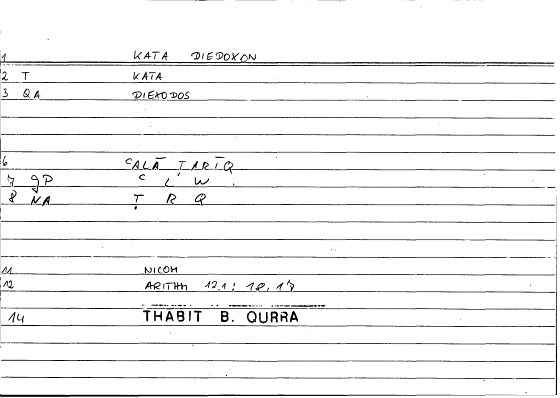 1 KATA DIEDOXON
2 T KATA
3 QA DIEXODOS
6 ʿALĀ ṬARĪQ
7 gP ʿ L W .
8 NA Ṭ R Q
11 NICOM
12 ARITHM 12.1 : 18, 17
14 THABIT B. QURRA